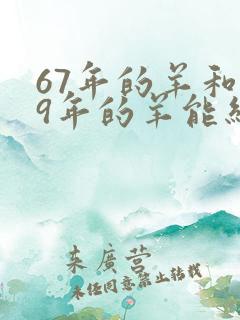 67年的羊和
9年的羊能
来广营
未经同意禁止转载